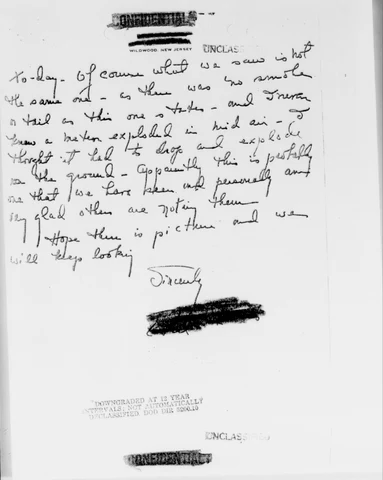 CONFIDENTIAL
WILDWOOD, NEW JERSEY
UNCLASS
to-day - Of course what we saw is not
the same one - as there was no smoke
or tail as this one states - and I never
knew a meteor exploded in mid air - I
thought it had to drop and explode
on the ground - Apparently this is probably
one that we have seen and personally am
very glad others are noting them
Hope there is picture and we
will keep looking
Sincerely
DOWNGRADED AT 12 YEAR
INTERVALS; NOT AUTOMATICALLY
DECLASSIFIED. DOD DIR 5200.10
UNCLASSIFIED
CONFIDENTIAL